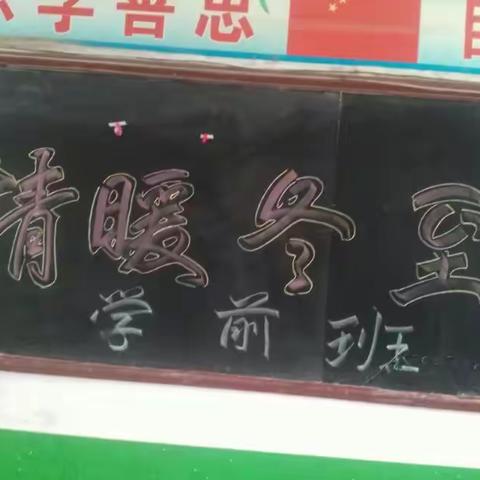 学善思
情暖冬至
学前班